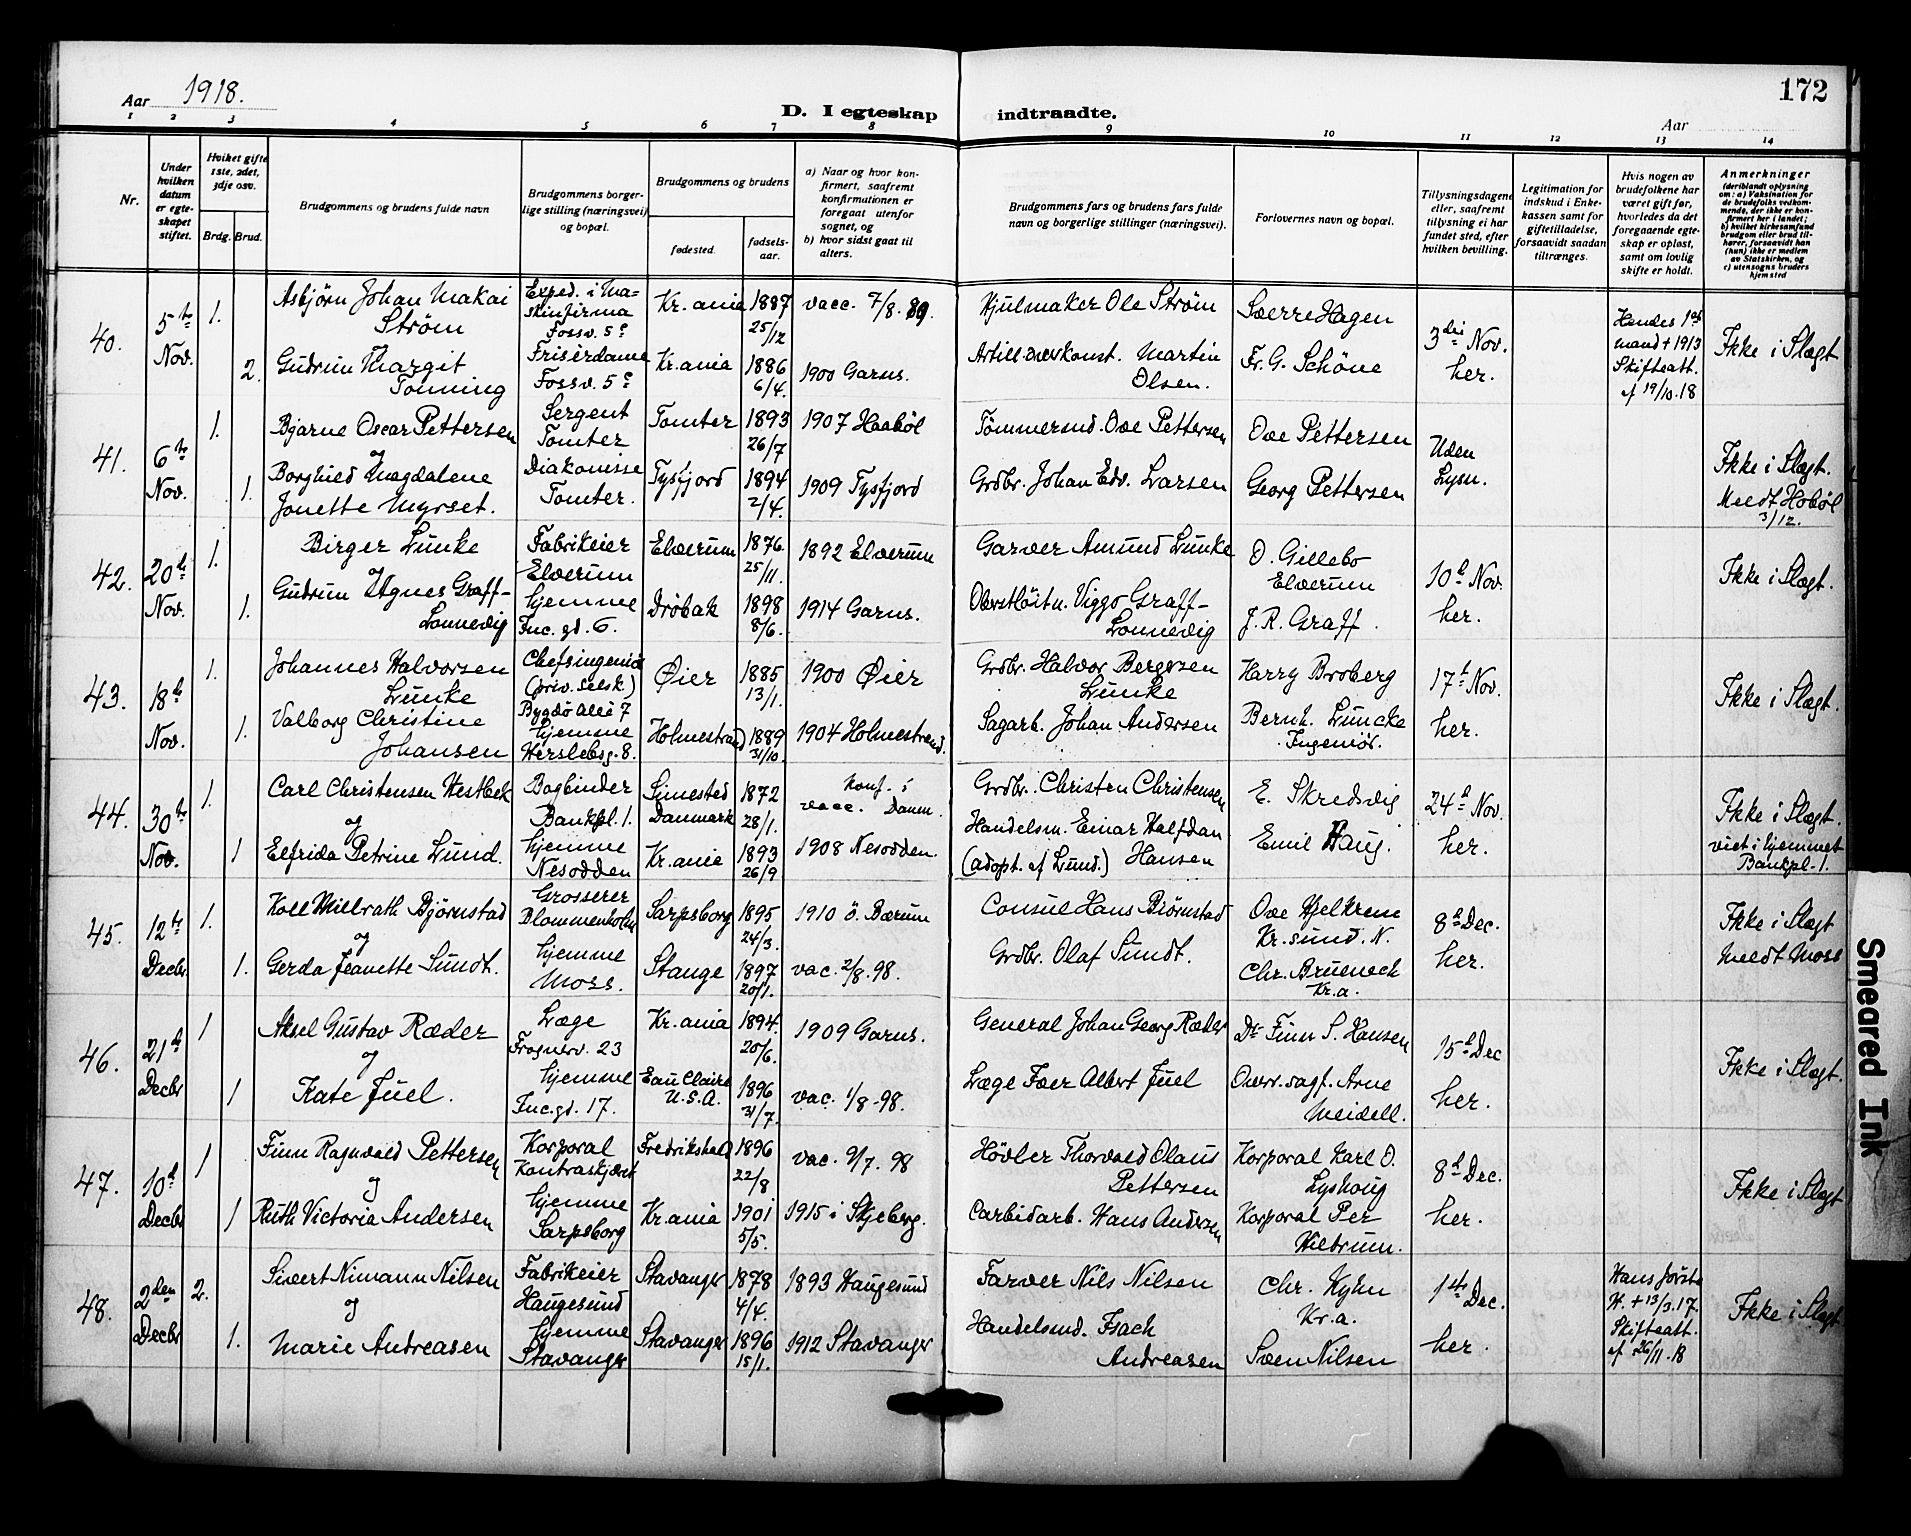 Aar 1918.
D. I egteskap indtraadte.
172
Aar
1 2 3 4 5 6 7 8 9 10 11 12 13 14
Nr.
Under hvilken datum er egteskapet stiftet.
Hvilket gifte 1ste, 2det, 3dje osv.
Brdg. Brud.
Brudgommens og brudens fulde navn
Brudgommens borgerlige stilling (næringsvei) og bopæl.
Brudgommens og brudens
fødested.
fødselsaar.
a) Naar og hvor konfirmert, saafremt konfirmationen er foregaat utenfor sognet, og
b) hvor sidst gaat til alters.
Brudgommens fars og brudens fars fulde navn og borgerlige stillinger (næringsvei).
Forlovernes navn og bopæl.
Tillysningsdagene eller, saafremt tillysning ei har fundet sted, efter hvilken bevilling.
Legitimation for indskud i Enkekassen samt for giftetilladelse, forsaavidt saadan tiltrænges.
Hvis nogen av brudefolkene har været gift før, hvorledes da det foregaaende egteskap er opløst, samt om lovlig skifte er holdt.
Anmerkninger
(deriblandt oplysning om: a) Vaksination for de brudefolks vedkommende, der ikke er konfirmert her i landet; b) hvilket kirkesamfund brudgom eller brud tilhører, forsaavidt han (hun) ikke er medlem av Statskirken, og c) utensogns bruders hjemsted
40. 5te Nov. 1.
Asbjørn Johan Makai Strøm
Exped. i Maskinfirma Fossv. 5c
Kr.ania 1887 25/12
vacc. 7/8. 89.
Hjulmaker Ole Strøm
Sverre Hagen
3die Nov. her.
Hendes 1ste mand + 1913 Skifteatt. af 19/10.18
Ikke i Slægt
2. Gudrun Margit Tonning
Friserdame Fossv. 5c
Kr.ania 1886 6/4.
1900 Garns.
Artill. overkonst. Martin Olsen.
Fr. G. Schöne
41. 6te Nov. 1.
Bjarne Oscar Pettersen og
Sergent Tomter
Tomter 1893 26/7
1907 Haabøl
Tømmermd. Ove Pettersen
Ove Pettersen
Uden Lysn.
Ikke i Slægt.
Meldt Hobøl 3/12.
1. Borghild Magdalene Jonette Myrset.
Diakonisse Tomter.
Tysfjord 1894 2/4.
1909 Tysfjord
Grdbr. Johan Edv. Larsen
Georg Pettersen
42. 20de Nov. 1.
Birger Lunke og
Fabrikeier Elverum
Elverum 1876 25/11.
1892 Elverum
Garver Amund Lunke
O. Gillebo Elverum
10de Nov. her.
Ikke i Slægt.
1. Gudrun Agnes Graff-Lonnevig
hjemme Inc. gd. 6.
Drøbak 1898 8/6.
1914 Garns.
Oberstløitn. Viggo Graff-Lonnevig
J. R. Graff.
43. 18de Nov. 1.
Johannes Halvorsen Lunke
Chefsingeniør (priv. selsk.) Bygdø Allé 7
Øier 1885 13/1.
1900 Øier
Grdbr. Halvor Bergersen Lunke
Harry Broberg
17de Nov. her.
Ikke i Slægt.
1. Valborg Christine Johansen
hjemme Herslebsg. 8.
Holmestrand 1889 31/10.
1904 Holmestrand.
Sagarb. Johan Andersen
Bernh. Luncke Ingeniør.
44. 30te Nov. 1.
Carl Christensen Hestbek og
Bogbinder Bankpl. 1.
Simested Danmark 1872 28/1.
Konf. i vacc. Danm.
Grdbr. Christen Christensen
E. Skredsvig
24de Nov. her.
Ikke i Slægt.
viet i hjemmet Bankpl. 1.
1 Elfrida Petrine Lund.
hjemme Nesodden
Kr.ania 1893 26/9
1908 Nesodden.
Handelsm. Einar Halfdan Hansen (adopt. af Lund.)
Emil Haug.
45. 12te Decbr 1.
Koll Millrath Bjørnstad og
Grosserer Blommenholm
Sarpsborg 1895 24/3.
1910 ö. Bærum
Consul Hans Biørnstad
Ove Hjelkrem Kr.sund. N.
8de Dec. her.
Ikke i Slægt
Meldt Moss
1. Gerda Jeanette Sundt.
hjemme Moss.
Stange 1897 20/1.
vac. 2/8. 98.
Grdbr. Olaf Sundt.
Chr. Bruenech Kr.a.
46. 21de Decbr 1
Aksel Gustav Ræder og
Læge Frognerv. 23
Kr.ania 1894. 20/6.
1909 Garns.
General Johan Georg Ræder
Dr Finn S. Hansen
15de Dec her.
Ikke i Slægt.
1 Kate Juel.
hjemme Inc.gd. 17.
Eau Claire U.S.A. 1896 31/7.
vac. 1/8 -98.
Læge Faer Albert Juel
Overr.sagf. Arne Meidell.
47. 10de Decbr 1
Finn Ragnvald Pettersen og
Korporal Kontraskjæret
Fredrikshald 1896 22/8
vac. 9/7. 98
Høvler Thorvald Olaus Pettersen
Korporal Karl O. Lyshoug
8de Dec. her.
Ikke i Slægt
1 Ruth Victoria Andersen
hjemme Sarpsborg
Kr.ania 1901 5/5.
1915 i Skjeberg.
Carbidarb. Hans Andersen
Korporal Per Hilbrum.
48. 2den Decbr 2.
Sivert Nimann Nilsen og
Fabrikeier Haugesund
Stavanger 1878 4/4.
1893 Haugesund
Farver Nils Nilsen
Chr. Kyhn Kr.a.
1ste Dec. her.
Hans første H. + 13/3.17. Skifteatt. af 26/11.18
Ikke i Slægt
1. Marie Andreasen
hjemme Stavanger
Stavanger 1896 15/1.
1912 Stavanger
Handelsmd. Isach Andreasen
Sven Nilsen
Smeared Ink